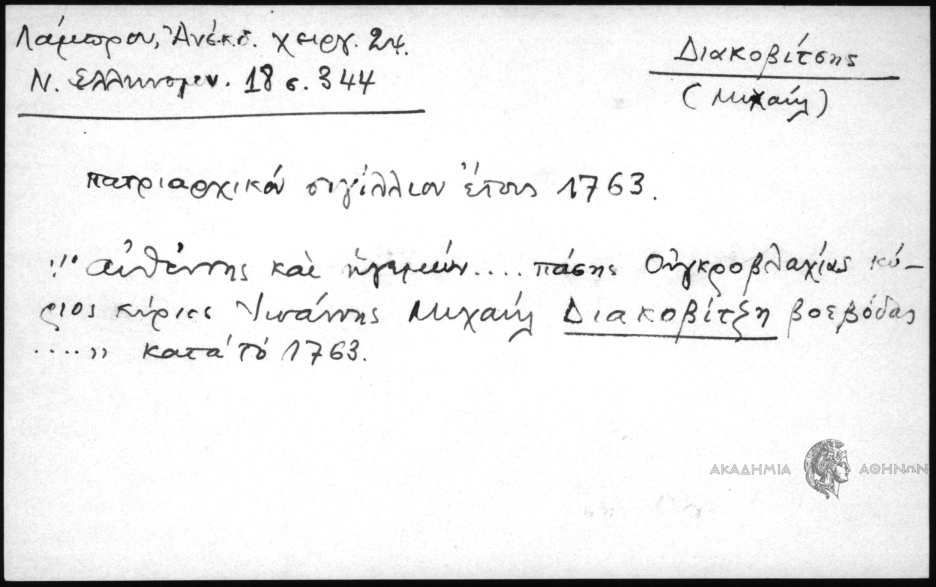 Λάμπρου, Ἀνέκδ. χειργ. 24.
Ν. Ἑλληνομν. 18 σ. 344
Διακοβίτσης
(Μιχαήλ)
πατριαρχικόν σιγίλλιον ἔτους 1763.
"αὐθέντης καὶ ἡγεμών.... πάσης Οὐγκροβλαχίας κύ-
ριος κύριος Ἰωάννης Μιχαήλ Διακοβίτζη βοεβόδας
....,, κατά τό 1763.
ΑΚΑΔΗΜΙΑ ΑΘΗΝΩΝ